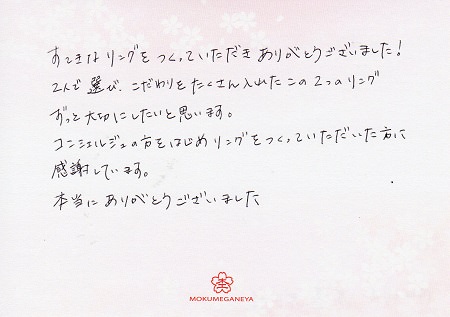 すてきなリングをつくっていただきありがとうございました!
2人で選び、こだわりをたくさん入れたこの2つのリング
ずっと大切にしたいと思います。
コンシェルジュの方をはじめリングをつくっていただいた方に
感謝しています。
本当にありがとうございました
MOKUMEGANEYA